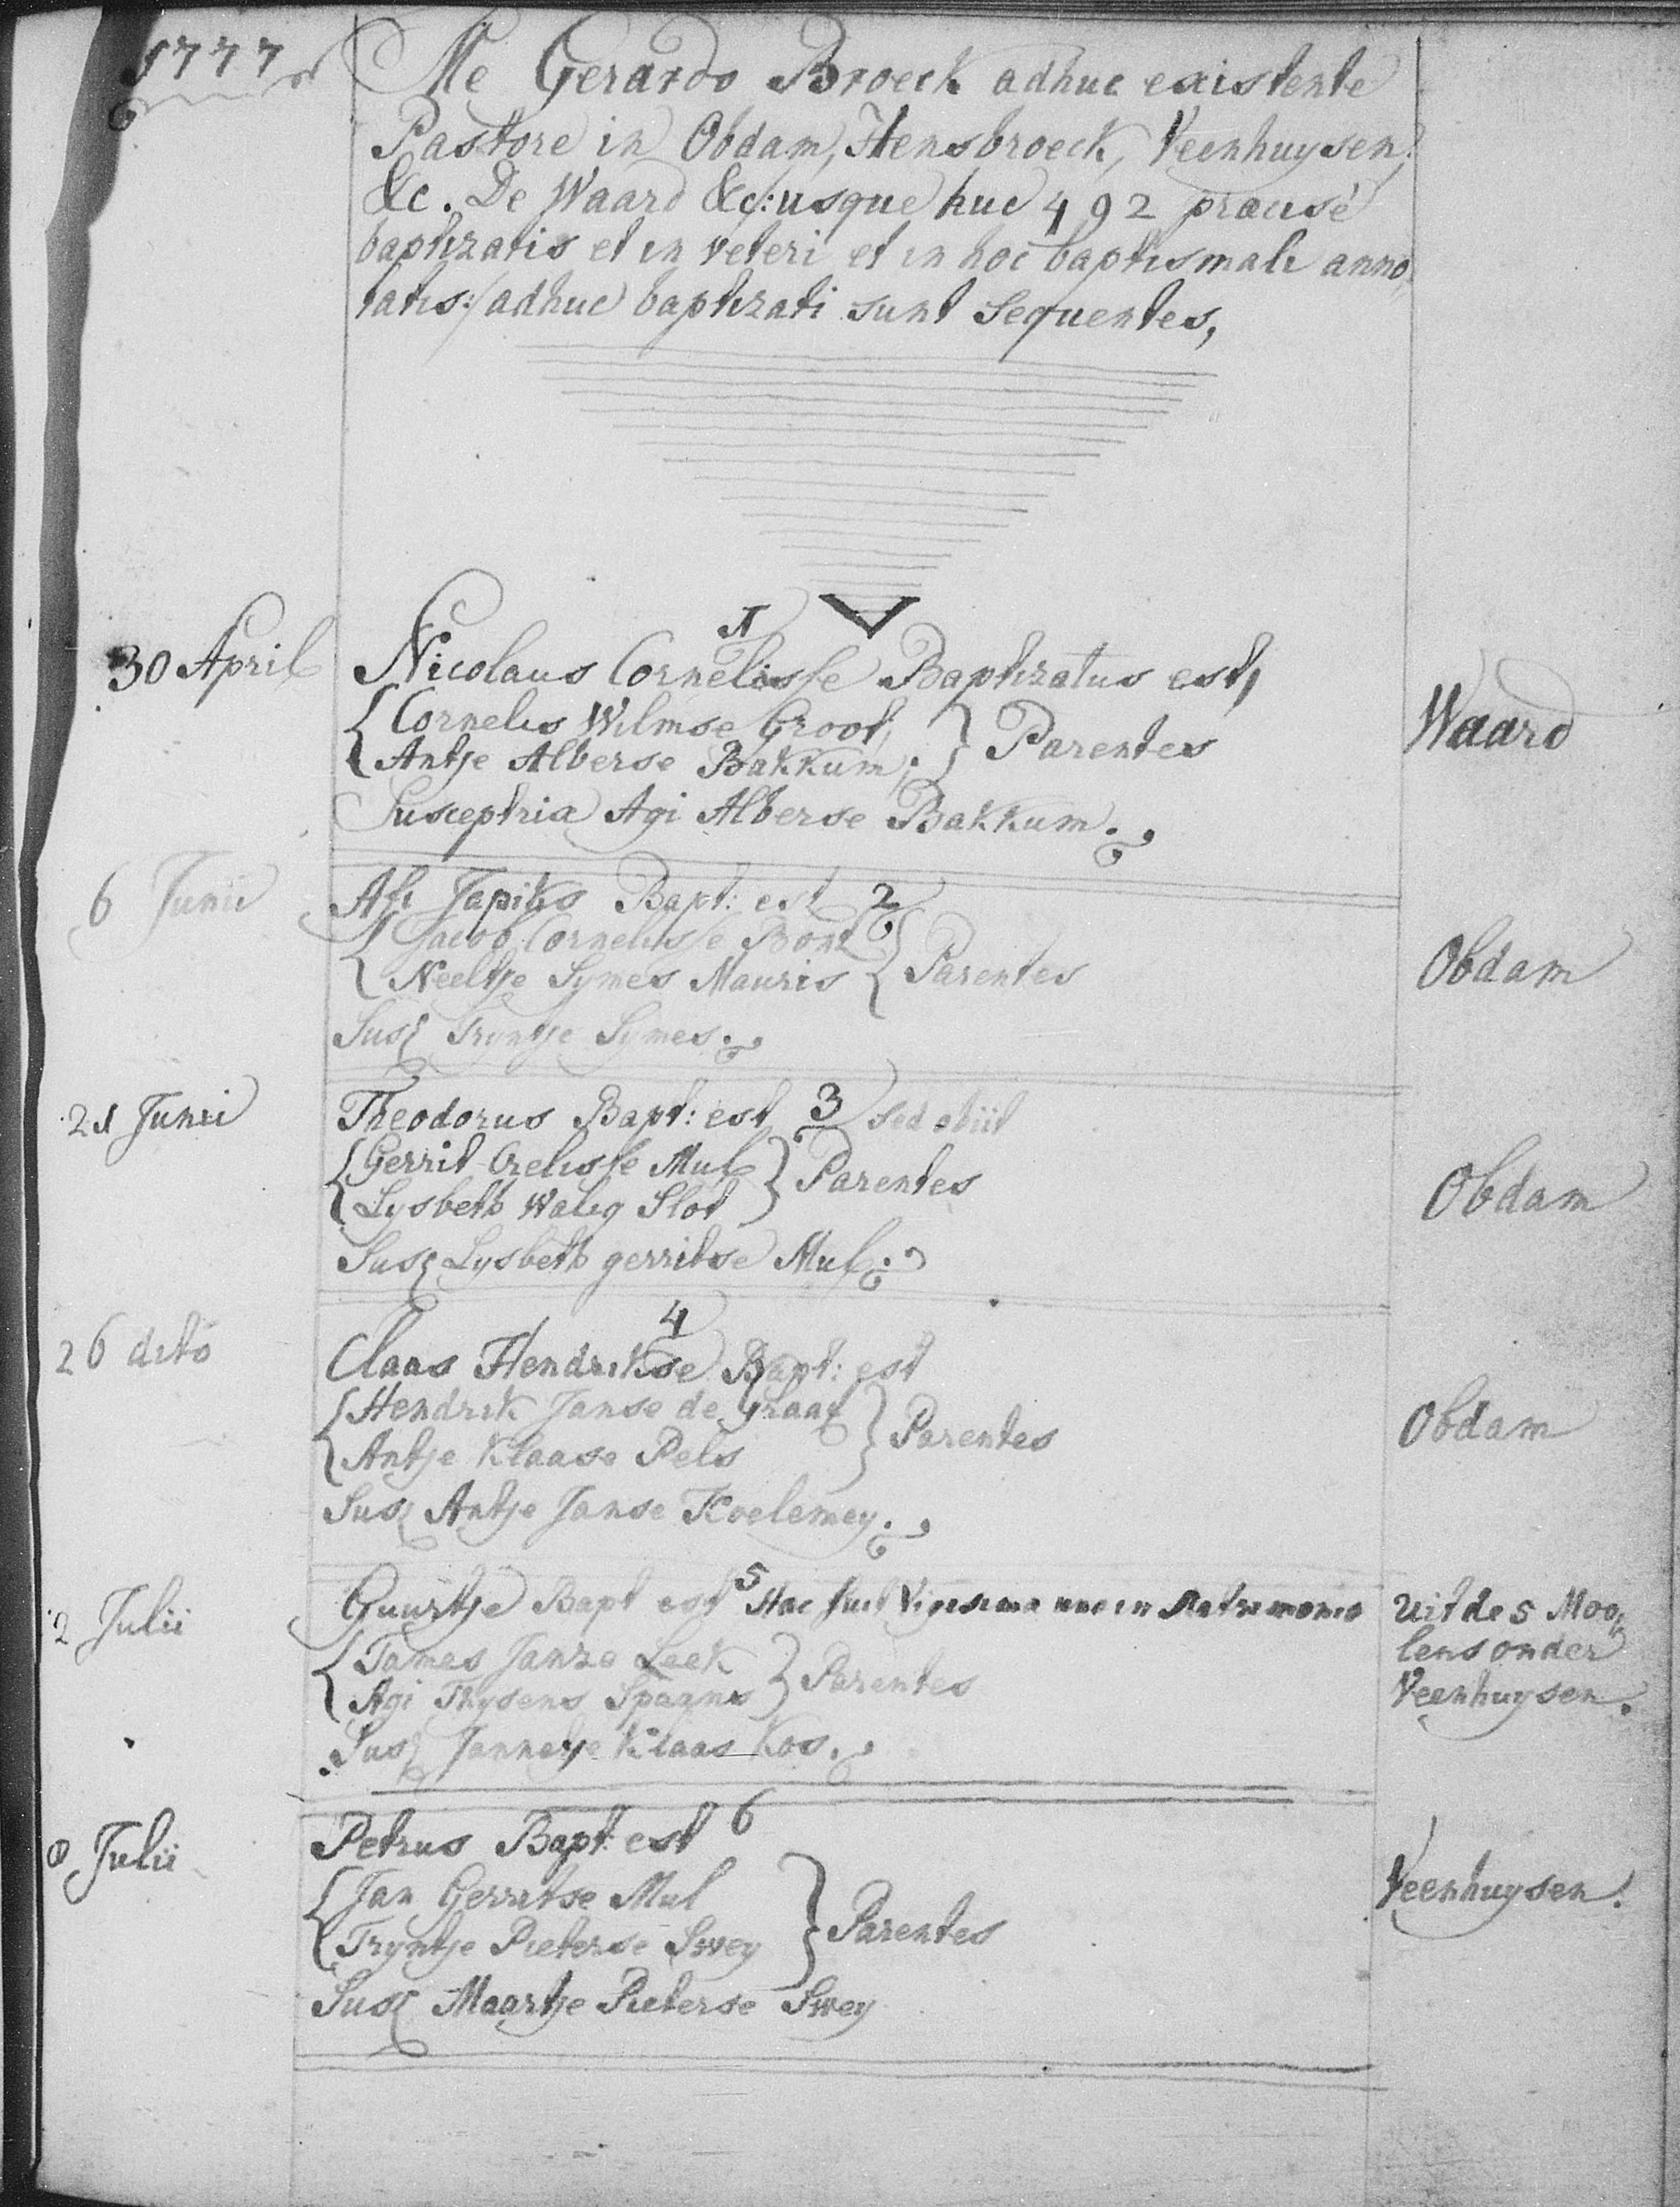 1777
Me Gerardo Broeck adhuc existente
Pastore in Obdam, Hensbroeck, Veenhuysen,
&c. De Waard &c/: usque huc 492 praecisé
baptizatis et in veteri et in hoc baptismali anno„
tatis:/ adhuc baptizati sunt Sequentes,
1
30 April
Nicolaus Cornelisse Baptizatus est,
Cornelis Wilmse Groot,
Antje Alberse Bakkum; } Parentes
Waard
Susceptrix Agi Alberse Bakkum.
6 Junii
Afi Japiks Bapt: est 2
Jacob Cornelisse Bont
Neeltje Symes Mauris } Parentes
Obdam
Sus: Tryntje Symes.
21 Junii
Theodorus Bapt: est 3 sed obiit
Gerrit Crelisse Mul
Lysbeth Walig Slot } Parentes
Obdam
Sus: Lysbeth gerritse Mul.
4
26 dito
Claas Hendrikse Bapt: est
Hendrik Janse de Graaf
Antje Klaase Pels } Parentes
Obdam
Sus: Antje Janse Koelemey.
2 Julii
Guurtje Bapt est 5 Hac fuit Vigesima in Matrimonio
Uit de 5 Moo„
lens onder
Veenhuysen.
Tames Janze Leek
Agi Thysens Spaans } Parentes
Sus: Jannetje Klaas Kos.
8 Julii
Petrus Bapt: est 6
Jan Gerritse Mul
Tryntje Pieterse Swey } Parentes
Veenhuysen.
Sus: Maartje Pieterse Swey